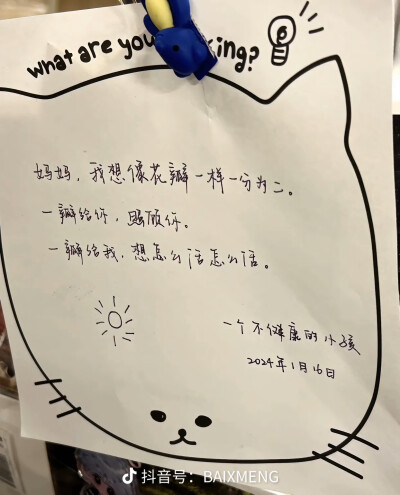 What are you king?
妈妈，我想像花瓣一样一分为二。
一瓣给你，照顾你。
一瓣给我，想怎么活怎么活。
一个不健康的小孩
2024年1月16日
抖音号：BAIXMENG